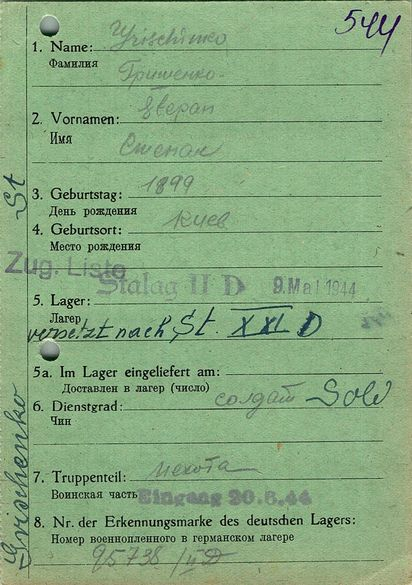 544
1. Name: Grischenko
Фамилия
Грищенко
2. Vornamen: Stepan
Имя
Степан
3. Geburtstag: 1899
День рождения
4. Geburtsort: Киев
Место рождения
Zug. Liste
Stalag II D 9. Mai 1944
5. Lager:
Лагерь
versetzt nach St. XXI D
5a. Im Lager eingeliefert am:
Доставлен в лагерь (число)
6. Dienstgrad: солдат Sold
Чин
7. Truppenteil: пехота
Воинская часть Eingang 20.6.44
8. Nr. der Erkennungsmarke des deutschen Lagers:
Номер военнопленного в германском лагере
95738 / II D
Grischenko St